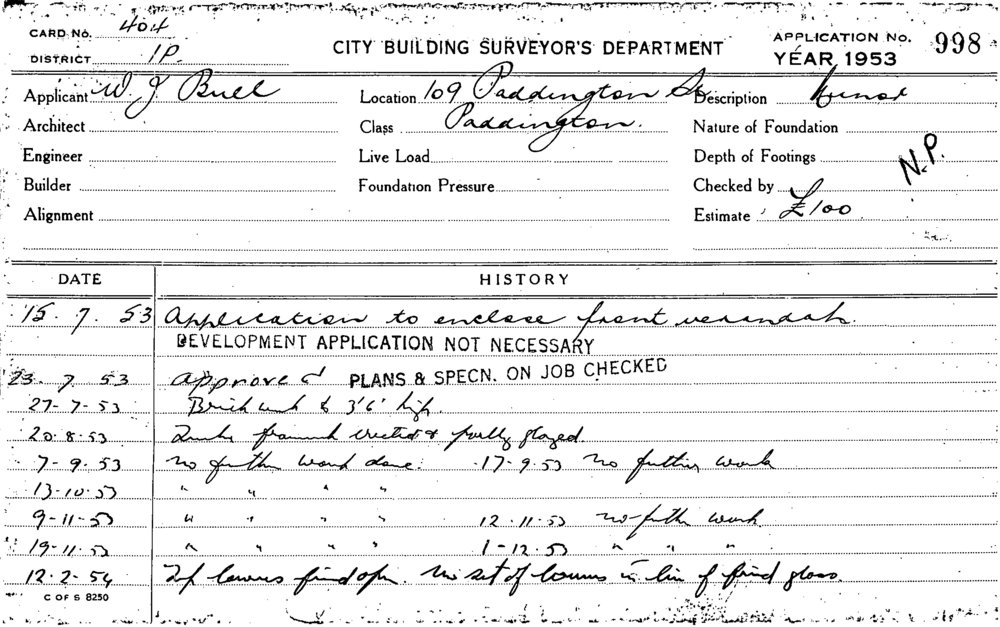 CARD No. 404
DISTRICT 1P.
CITY BUILDING SURVEYOR'S DEPARTMENT
APPLICATION No. 998
YEAR 1953
Applicant W. J. Buel Location 109 Paddington St Description Minor
Architect Class Paddington. Nature of Foundation
Engineer Live Load Depth of Footings N.P.
Builder Foundation Pressure Checked by
Alignment Estimate £100
DATE HISTORY
15. 7. 53 Application to enclose front verandah.
DEVELOPMENT APPLICATION NOT NECESSARY
23. 7. 53 Approved PLANS & SPECN. ON JOB CHECKED
27-7-53 Brick work to 3'6" high.
20.8.53 erected & partly glazed
7-9.53 no further work done. 17-9.53 no further work
13-10-53 " " " "
9-11-53 " " " " 12.11.53 no further work
19.11.53 " " " " 1-12.53 " " "
12.2-54 louvres fixed open no set of louvres in lieu of fixed glass.
C OF S 8250